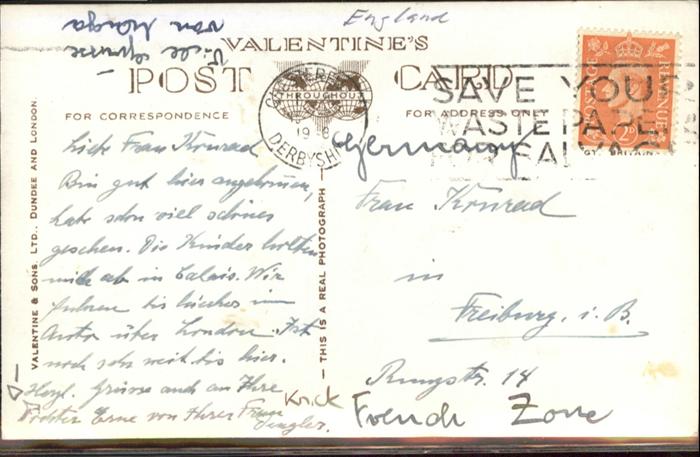 England
Viele Grüsse
von Marga
VALENTINE'S
POST CARD
THROUGHOUT
FOR CORRESPONDENCE
FOR ADDRESS ONLY
CHESTERFIELD
19
DERBYSHIRE
SAVE YOUR
WASTE PAPER
FOR SALVAGE
POSTAGE REVENUE
2D
GT. BRITAIN
VALENTINE & SONS, LTD., DUNDEE AND LONDON.
Liebe Frau Konrad
Bin gut hier angekommen,
habe schon viel schönes
gesehen. Die Kinder holten
mich ab in Calais. Wir
fuhren bis hierher im
Auto über London. Ist
noch sehr weit bis hier.
Herzl. Grüsse auch an Ihre
Tochter Erne von Ihrer Frau
THIS IS A REAL PHOTOGRAPH
Germany
Frau Konrad
in
Freiburg, i. B.
Ringstr. 14
Knick
French Zone